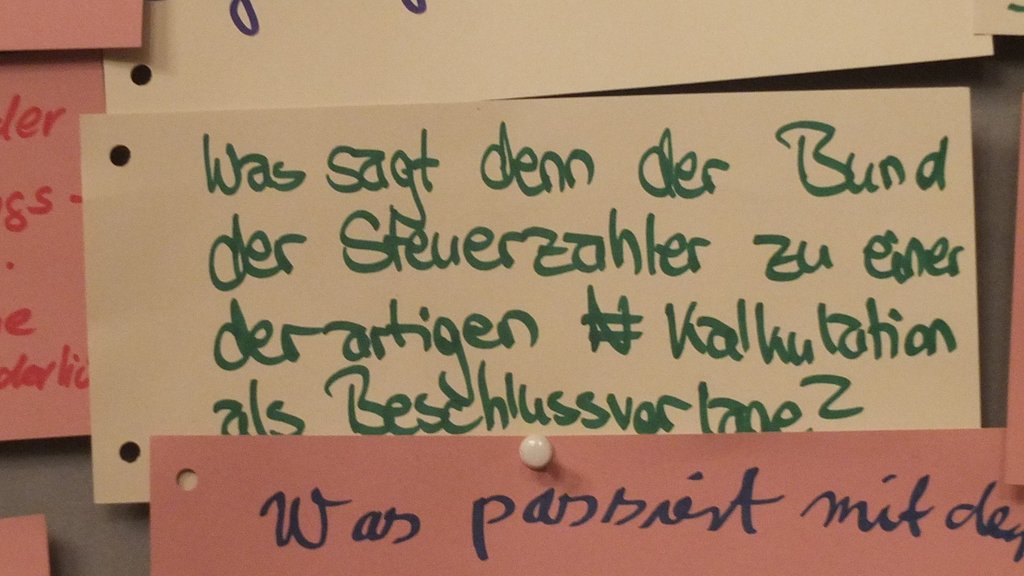 der
gs-
Was sagt denn der Bund
der Steuerzahler zu einer
derartigen Kalkulation
als Beschlussvorlage?
Was passiert mit der